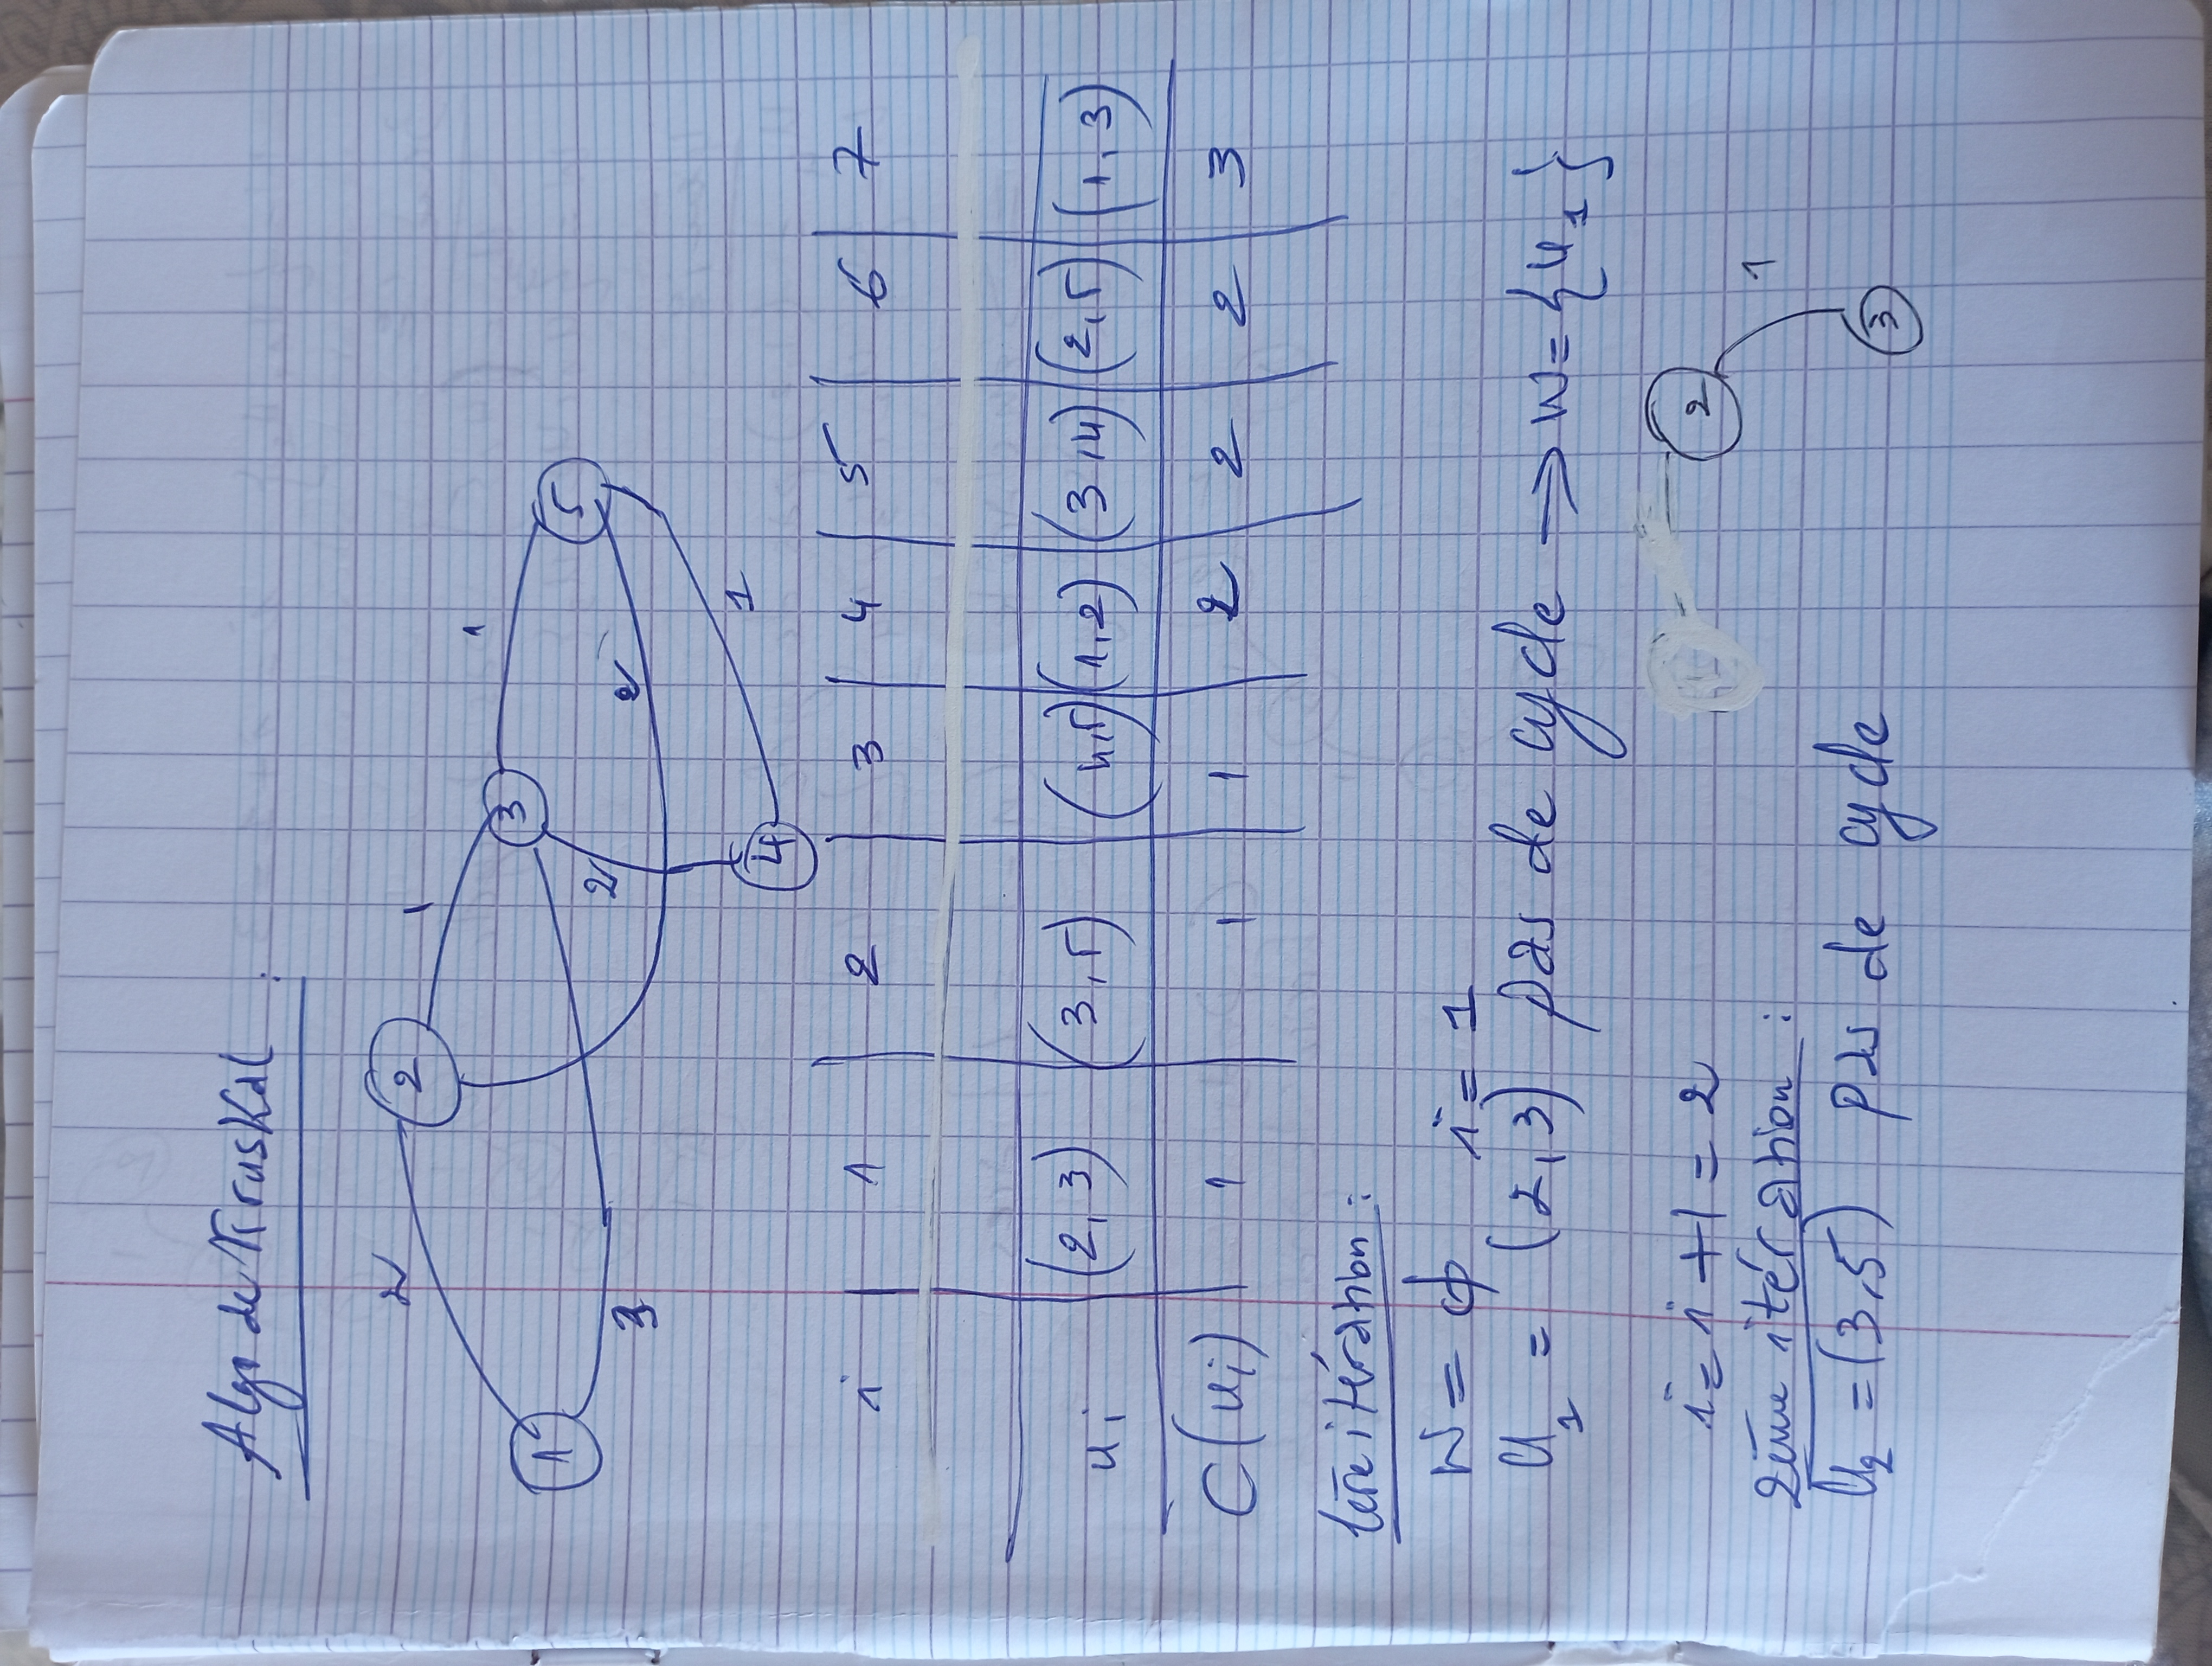 Algo de Kruskal :
1 2 2 1 3 3 2 4 2 1 1 5
i 1 2 3 4 5 6 7
ui (2,3) (3,5) (4,5) (1,2) (3,4) (2,5) (1,3)
C(ui) 1 1 1 2 2 2 3
1ère itération :
W = ϕ i = 1
U1 = (2,3) pas de cycle → W = {U1}
i = i + 1 = 2
2 1 3
2ème itération :
U2 = (3,5) pas de cycle